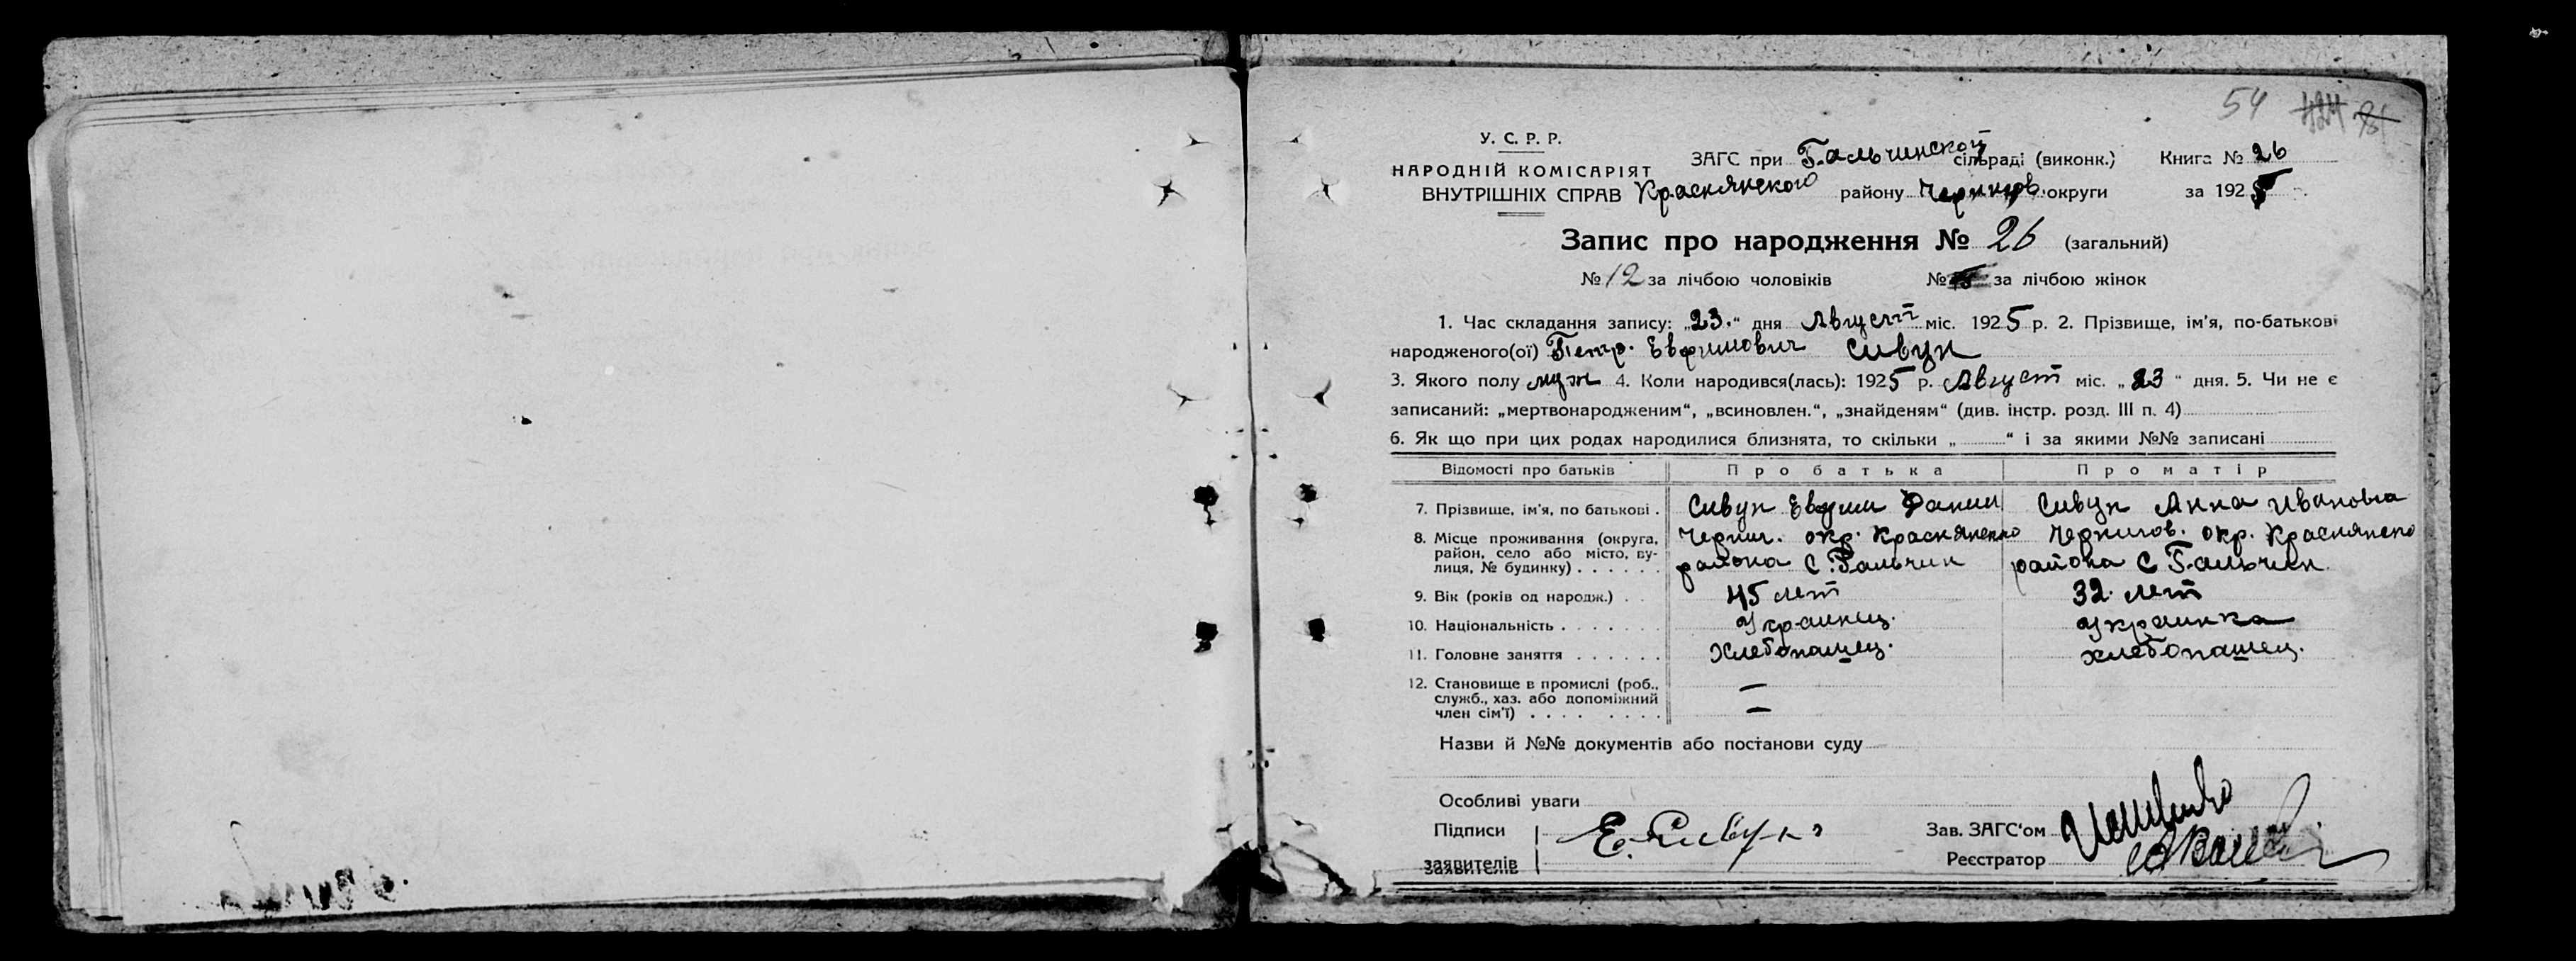 54
У. С. Р. Р.
НАРОДНІЙ КОМІСАРІЯТ
ВНУТРІШНІХ СПРАВ
ЗАГС при Гальчинской сільраді (виконк.) Книга № 26
Краснянского району Чернигов. округи за 1925
Запис про народження № 26 (загальний)
№ 12 за лічбою чоловіків № за лічбою жінок
1. Час складання запису: „23.“ дня Август міс. 1925 р. 2. Прізвище, ім'я, по-батькові
народженого(ої) Петр. Евфимович Сивук
3. Якого полу муж 4. Коли народився(лась): 1925 р. Август міс. „23“ дня. 5. Чи не є
записаний: „мертвонародженим“, „всиновлен.“, „знайденям“ (див. інстр. розд. III п. 4)
6. Як що при цих родах народилися близнята, то скільки „ “ і за якими №№ записані
Відомості про батьків Про батька Про матір
7. Прізвище, ім'я, по батькові . Сивук Евфим Данил Сивук Анна Ивановна
8. Місце проживання (округа, район, село або місто, вулиця, № будинку) . . . . . .
Черниг. окр. Краснянского
района С. Гальчин
Чернигов. окр. Краснянско
района С Гальчин.
9. Вік (років од народж.) . . 45 лет 32 лет
10. Національність . . . . . . . Украинец. Украинка
11. Головне заняття . . . . . . Хлебопашец. хлебопашец.
12. Становище в промислі (роб., —
служб., хаз. або допоміжний
член сім'ї) . . . . . . . . —
Назви й №№ документів або постанови суду
Особливі уваги
Підписи
заявителів
Е. Сивук
Зав. ЗАГС‘ом
Реєстратор